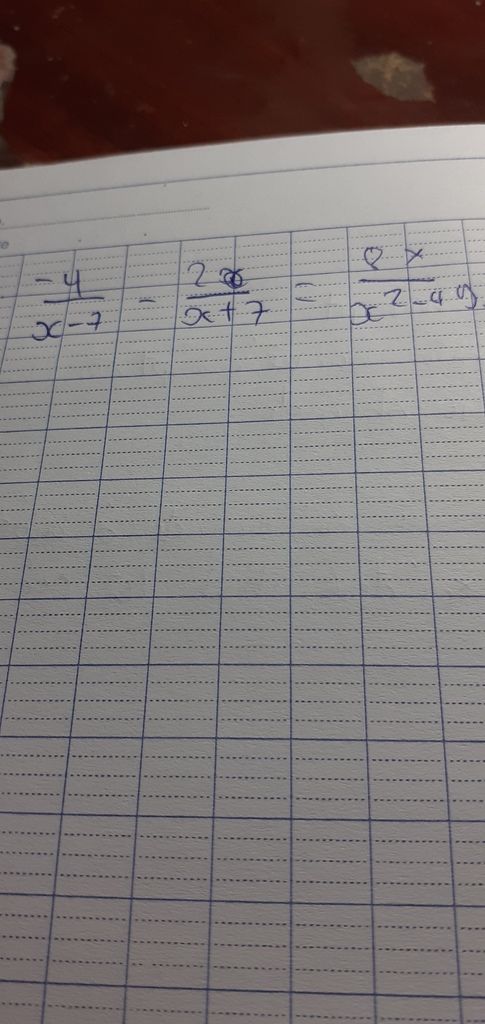 -4/(x-7) - 2x/(x+7) = 8x/(x²-49)